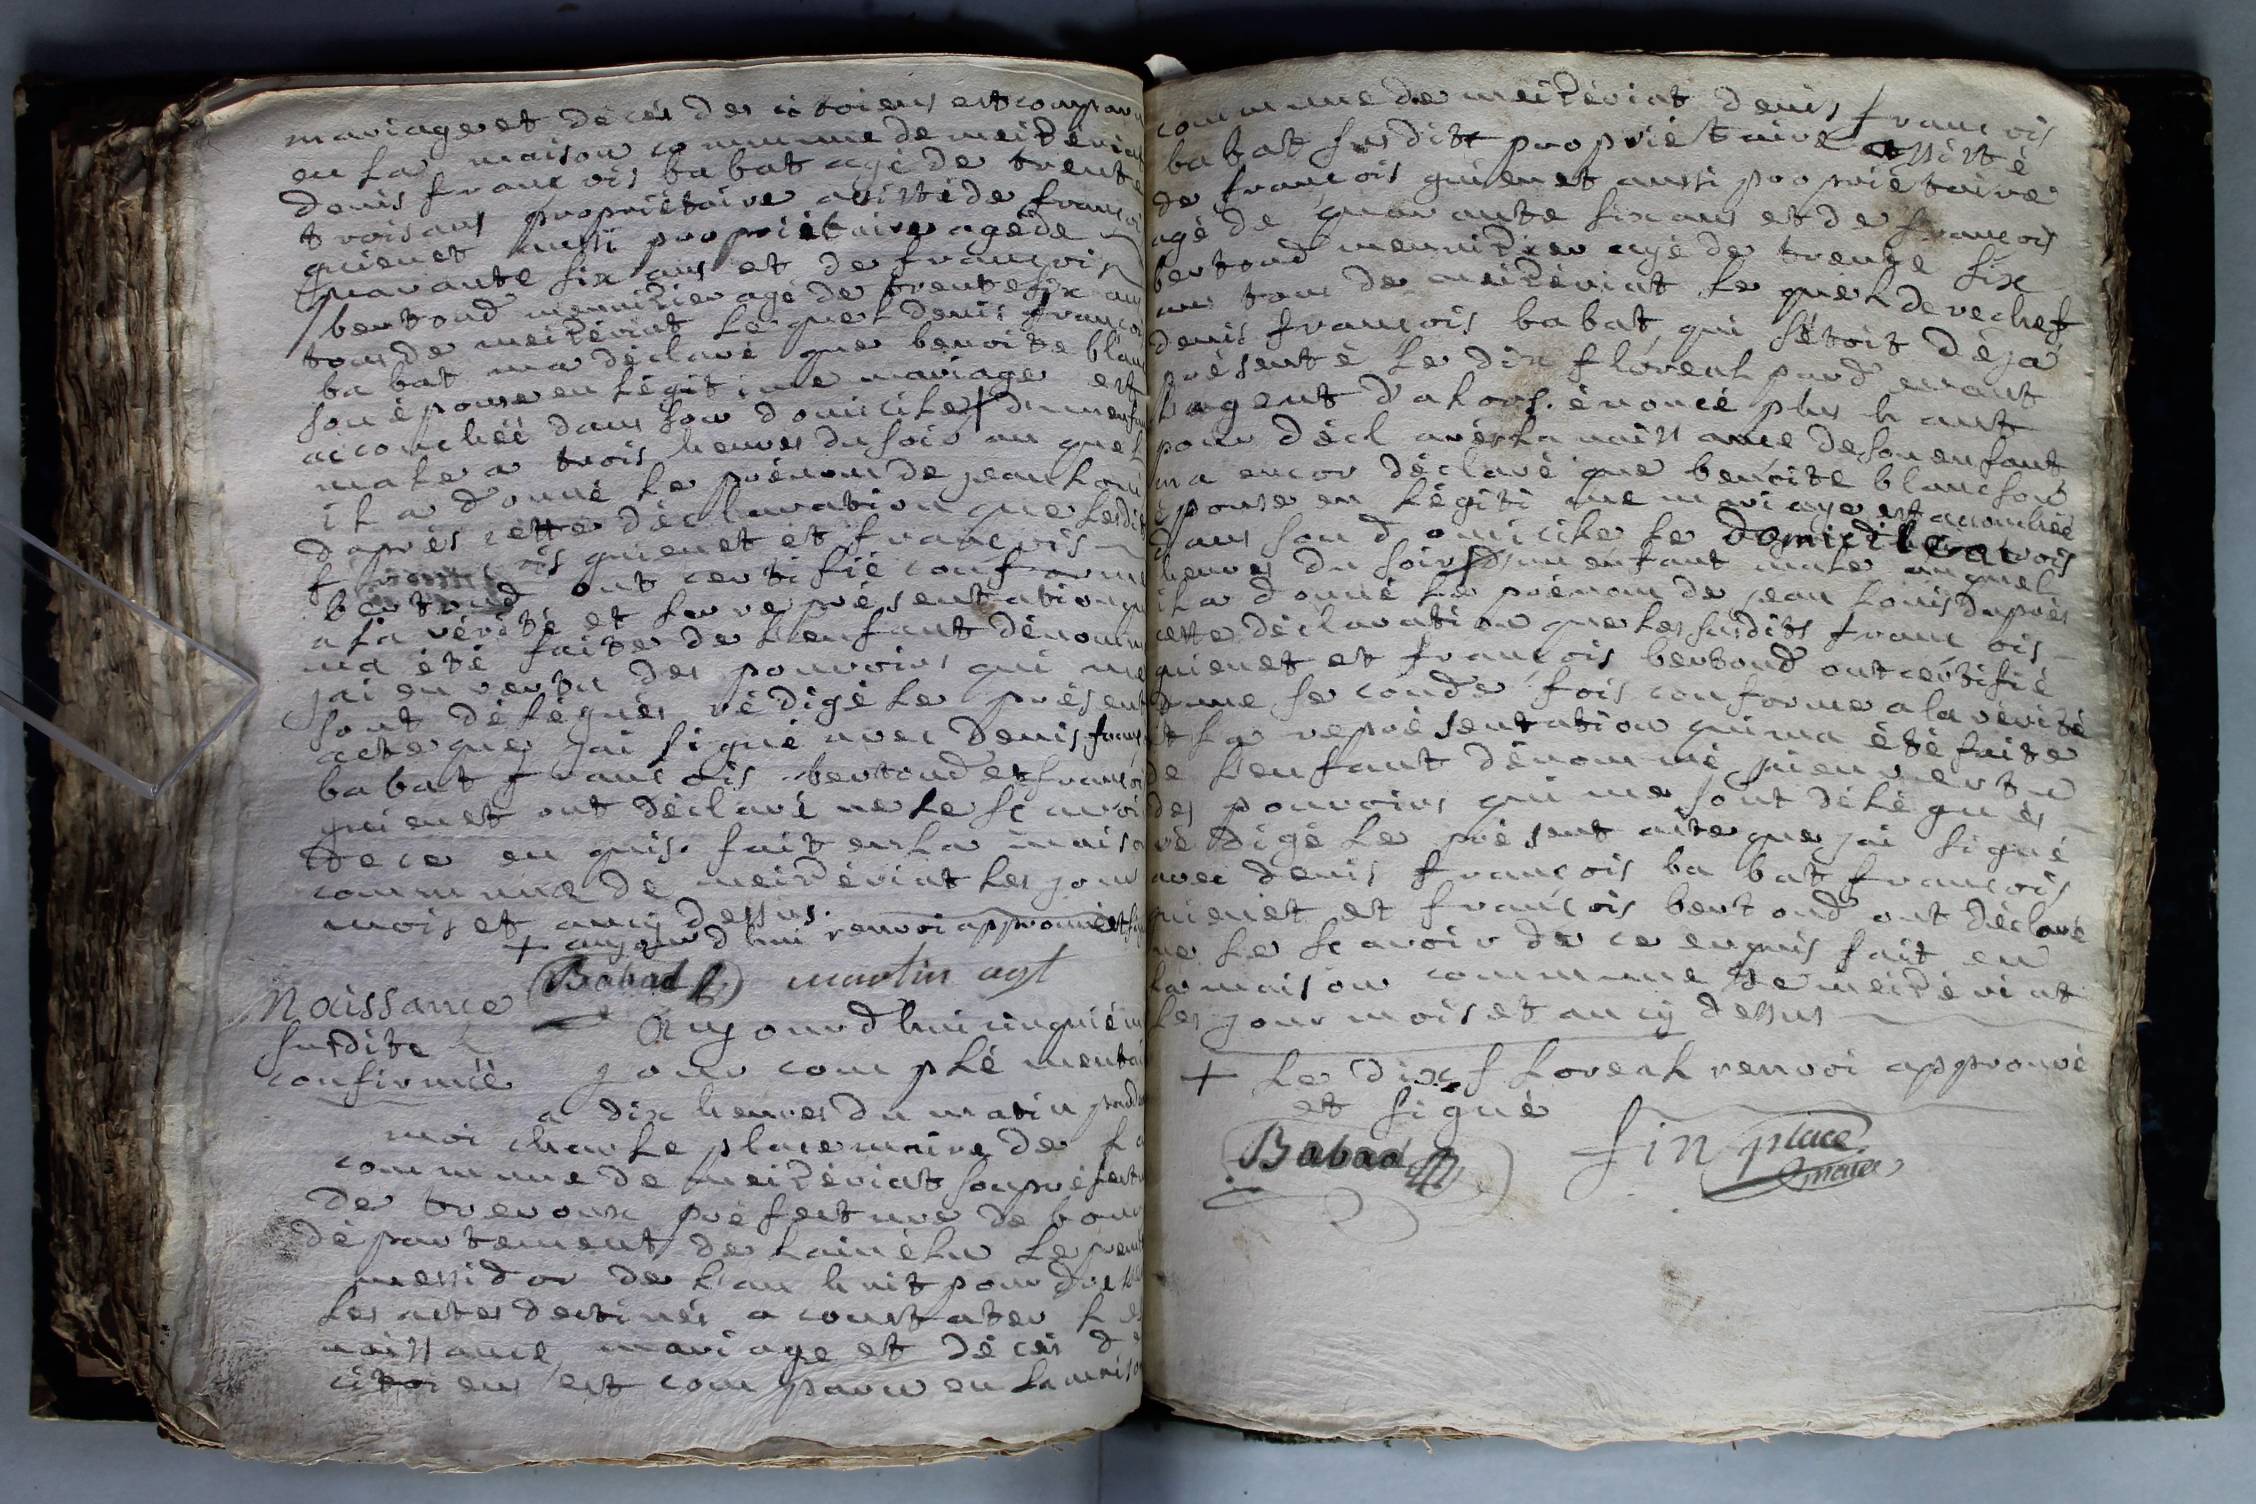 mariage et décés des citoiens est comparu
en la maison commune de meizériat
denis françois babat agé de trente
trois ans propriétaire assisté de françoi
guienet aussi propriétaire agé de
quarante six ans et de françois
bertoud menuizier agé de trente six ans
tous de meizériat le quel denis françoi
babat ma déclaré que benoite blanc
son épouse en légitime mariage est
acouchéé dans son domicile + dun enfan
male a trois heures du soir au quel
il a donné le prénom de jean loui
daprés cette déclaration que lesdit
françois guienet et françois
bertoud ont certifié conforme
a la vérité et la représentation qui
ma été faite de lenfant dénommé
jai en vertu des pouvoirs qui me
sont délégués rédigé le présent
acte que jai signé avec denis franço
babat françois bertoud et françoi
guienet ont déclaré ne le scavoi
de ce enquis. fait en la maiso
commune de meizériat les jour
mois et an cy dessus.
+ aujourdhui renvoi approuvé et sig
Babad martin agt
Naissance
susdite
confirméé
Aujourdhui cinquiém
jour complémentai
a dix heures du matin pard
moi charle place maire de la
commune de meizériat souprefectu
de trevoux préfecture de bour
département de lain élu le premi
messidor de lan huit pour dresser
les actes destinés a constater les
naissance, mariage et décés d
citoiens est comparu en la maiso
commune de meizériat denis françois
babat susdit propriétaire assisté
de françois guienet aussi propriétaire
agé de quarante six ans et de françois
bertoud menuizier agé de trente six
ans tous de meizériat le quel derechef
denis françois babat qui sétoit déja
présenté le dix floreal pard evant
lagent dalors. énoncé plus haut
pour déclarér la naissance de son enfant
ma encor déclaré que benoite blanc son
épouse en légitime mariage est acouchéé
dans son domicile le domicile a trois
heures du soir + dun enfant male auquel
il a donné le prénom de jean louis daprés
cette déclaration que les susdits françois
guienet et françois bertoud ont cértifié
dune seconde fois conforme a la vérité
et la représentation qui ma été faite
de lenfant dénommé jai en vertu
des pouvoirs qui me sont délégués
rédigé le présent acte que jai signé
avec denis françois babat françois
guienet et françois bertoud ont déclaré
ne le scavoir de ce enquis fait en
la maison commune de meizériat
les jour mois et an cy dessus
+ le dix floreal renvoi approuvé
et signé
Babad fin place
maire